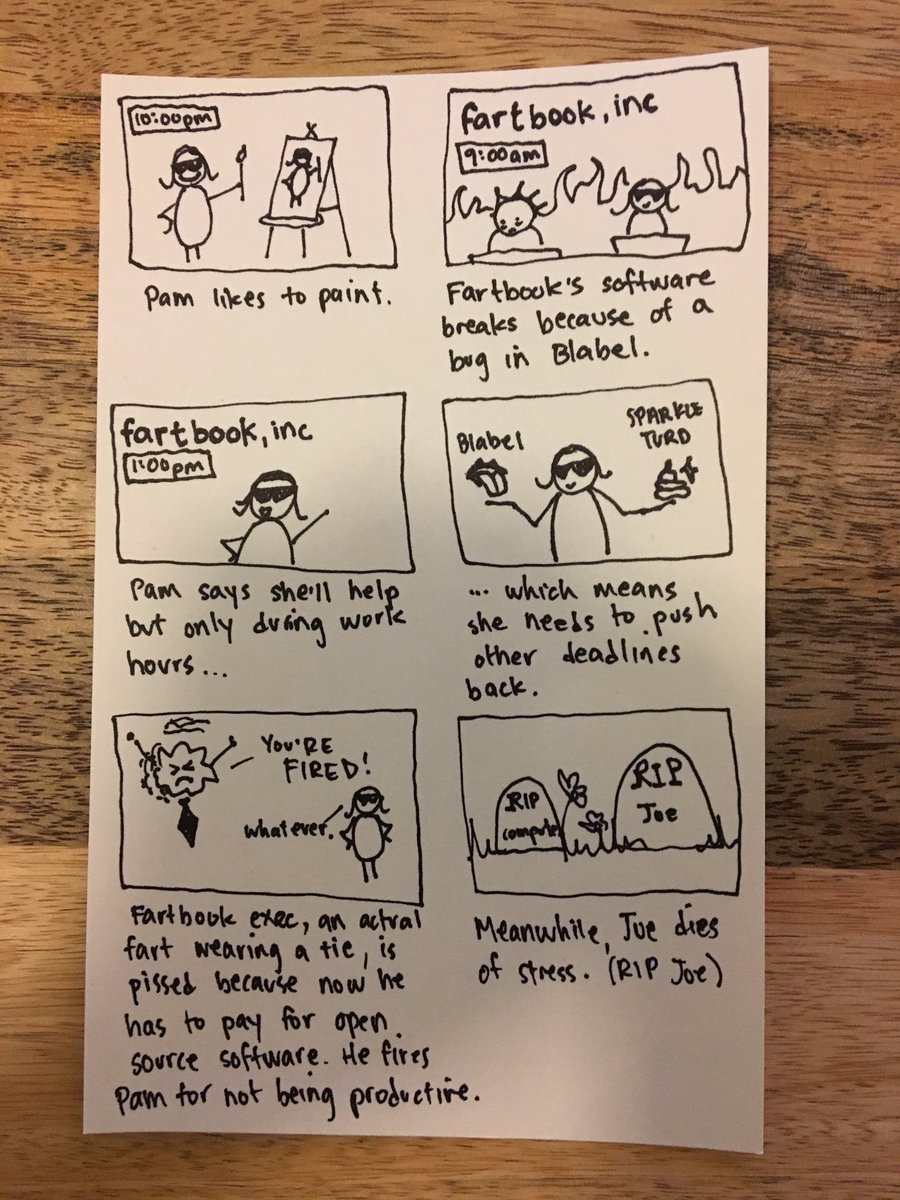 10:00pm
Pam likes to paint.
fartbook, inc
9:00am
Fartbook's software
breaks because of a
bug in Blabel.
fartbook, inc
1:00pm
Pam says she'll help
but only during work
hours...
Blabel
SPARKLE
TURD
... which means
she needs to push
other deadlines
back.
YOU'RE
FIRED!
whatever.
Fartbook exec, an actual
fart wearing a tie, is
pissed because now he
has to pay for open
source software. He fires
Pam for not being productive.
RIP
compute
RIP
Joe
Meanwhile, Joe dies
of stress. (RIP Joe)